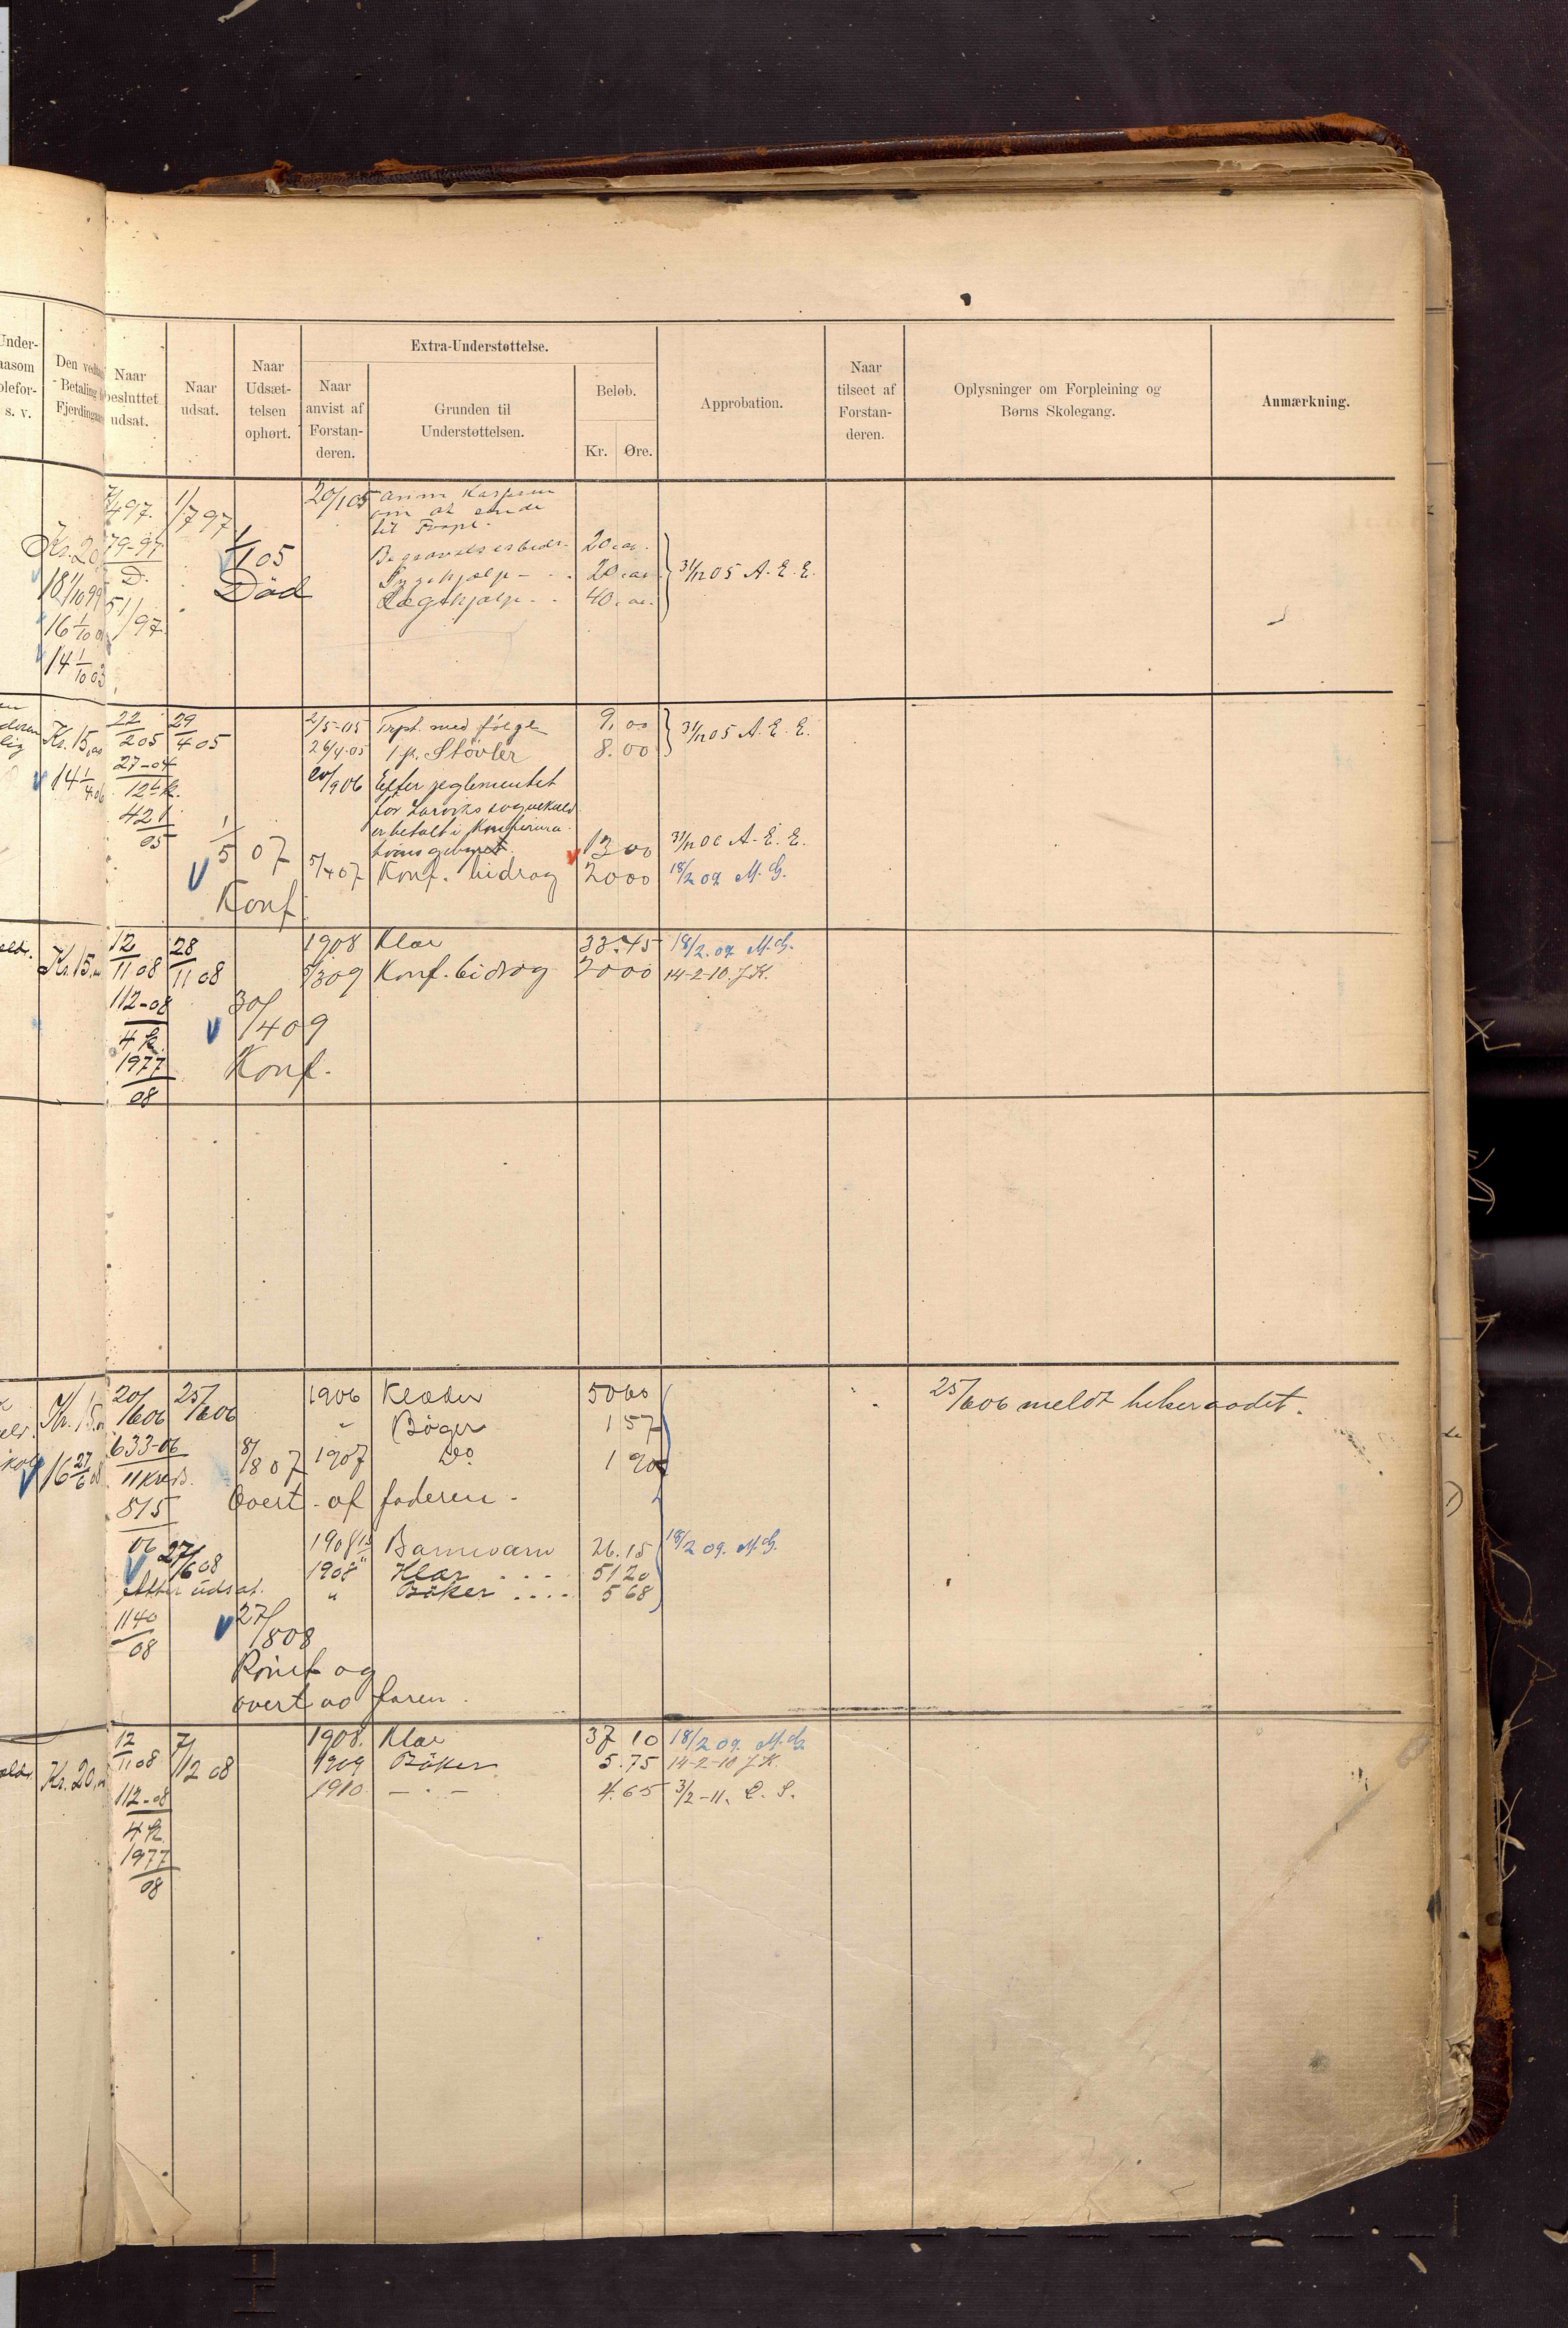 Under-
aasom
s. v.
Den
Betaling
Fjerdingaar
Naar
besluttet
udsat.
Naar
udsat.
Naar
Udsæt-
telsen
ophørt.
Extra-Understøttelse.
Naar
anvist af
Forstan-
deren.
Grunden til
Understøttelsen.
Beløb.
Kr. Øre.
Approbation.
Naar
tilseet af
Forstan-
deren.
Oplysninger om Forpleining og
Børns Skolegang.
Anmærkning.
1/7 97
20/1 05
om at sende
til
Kr. 20
79-97
D.
51/97
18 1/10 99
16 1/10
14 1/10 03
1/1 05
Død
Begravelsesbidr. 20.00.
Sygehjælp - - 20.00
Lægehjælp - - 40.00.
31/12 05 A. E. E.
Kr. 15,00
14 1/4 06
22/2 05
27-04
12
421
05
29/4 05
1/5 07
Konf
2/5-05 Trpt. med følge 9,00
26/4-05 1 p. Støvler 8.00
31/12 05 A. E. E.
20/9 06 Efter reglementet
for Larviks sognekald
er betalt i Konfirma-
tionsgebyret. 13 00 31/12 06 A. E. E.
5/4 07 Konf. bidrag 20 00 18/2 09 M. G.
Kr. 15,
12/11 08
112-08
4 k.
1977
08
28/11 08
30/4 09
Konf.
1908 Klær 33.45 18/2.09 M. G.
5/3 09 Konf. bidrag 20 00 14-2-10. J.K.
Kr. 15.
16 27/6 08
20/6 06
25/6 06
633-06
815
06
1906 Klæder 50 60
" Bøger 1 57
8/8 07 1907 Do 1 90
Overt. af faderen.
27/6 08
Atter udsat.
1140
08
26.15 18/2 09. M. G.
1908 Klær - - - 51 20
" Bøker .... 5 68
27/8 08
Konf og
overt av faren.
25/6 06 meldt helseraadet.
Kr. 20,
12/11 08
7/12 08
112-08
4 k
1977
08
1908. Klær 37 10 18/2 09. M. G.
1909 Bøker 5.75 14-2-10 J.K.
1910 - . - 4.65 3/2-11. L. S.